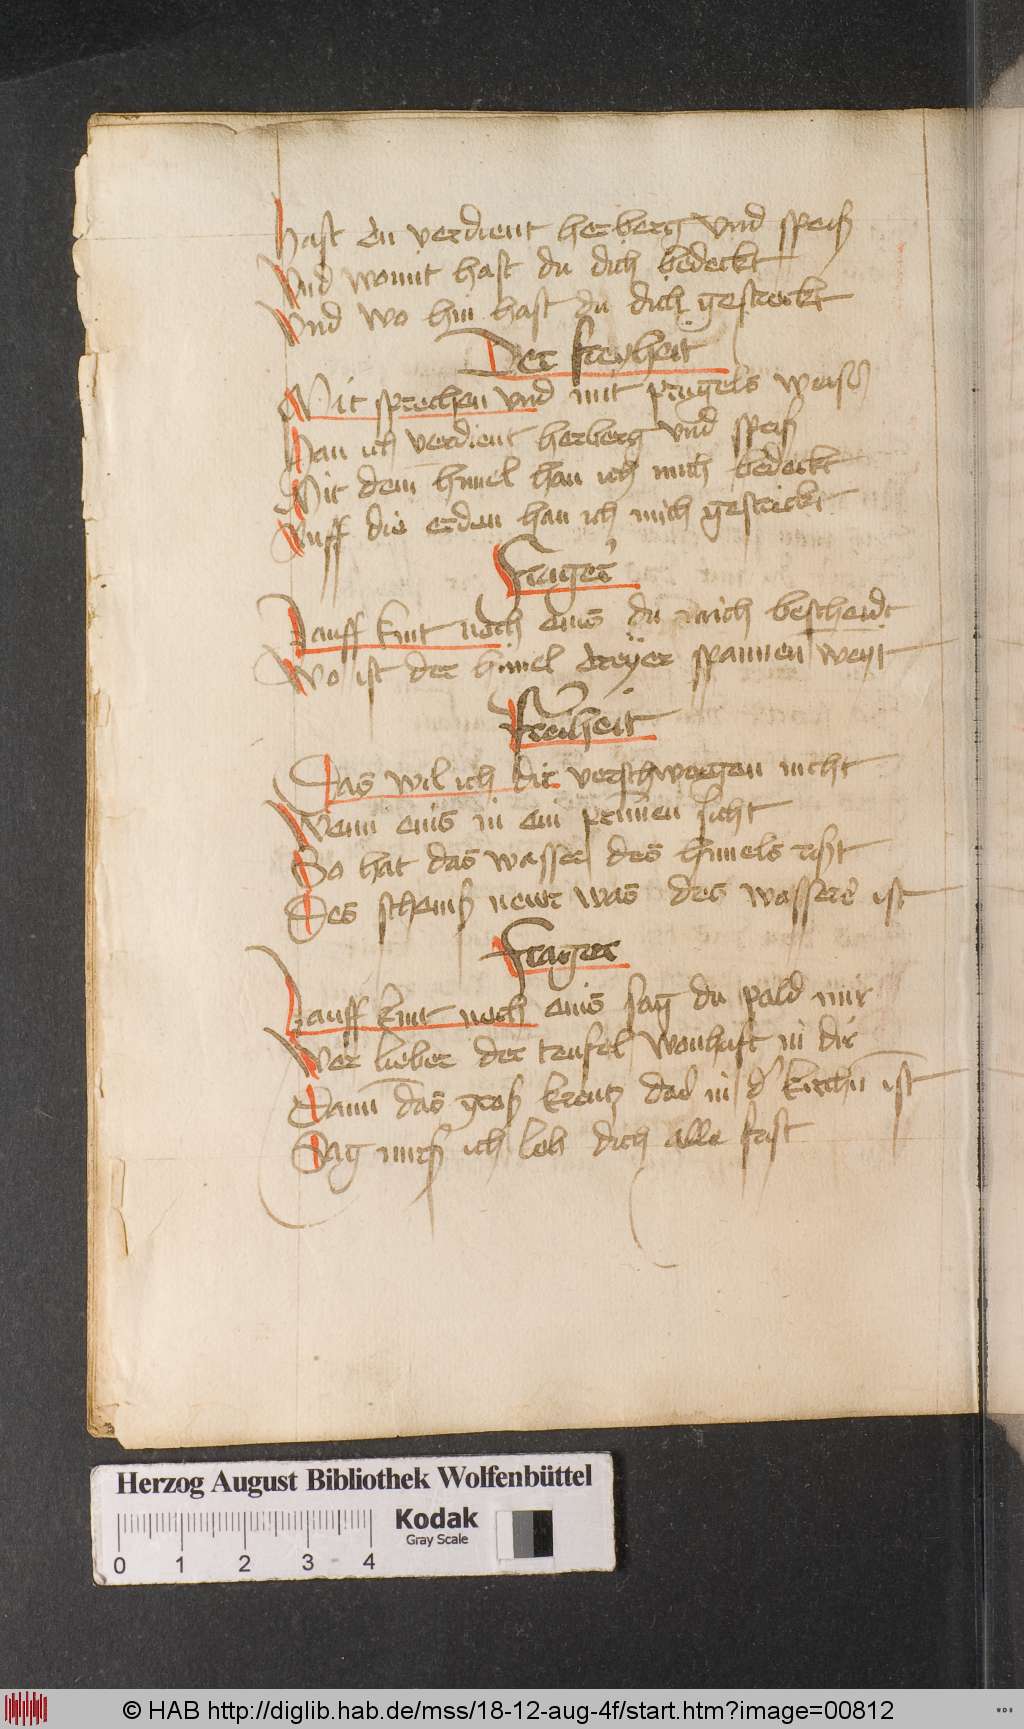 Hast du verdient herberg vnd speiß
Vnd womit hast du dich bedeckt
Vnd wo hin hast du dich gestreckt
Der freyheit
Mit sprechen vnd mit prugels weiß
Han ich verdient herberg vnd speiß
Mit dem himel han ich mich bedeckt
Auff die erden han ich mich gestreckt
Frager
Lauff knit noch eins du mich bescheidt
Wo ist der himel dreyer spannen weyt
Freiheit
Das wil ich dir verschweigen nicht
Wenn eins in ein prunnen sicht
So hat das wasser des himels
Des scheins neur was des wassers ist
Frager
Lauff knit noch eins sag du pald mir
Wer lieber der teufel wonhaft in dir
Dann das groß kreutz das in der kirchen ist
Sag mirß ich leb dich alle frist
Herzog August Bibliothek Wolfenbüttel
Kodak
Gray Scale
0 1 2 3 4
© HAB http://diglib.hab.de/mss/18-12-aug-4f/start.htm?image=00812